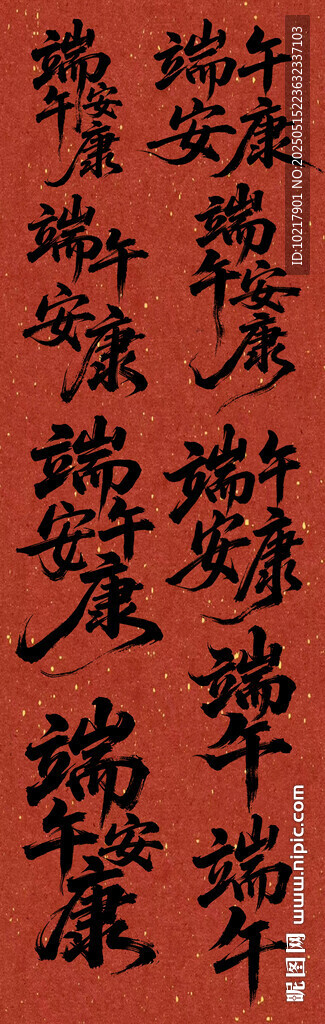 端午安康
端午安康
端午安康
端午安康
端午安康
端午安康
端午安康
端午
端午
ID:10217901 NO.20250515223632337103
昵图网 www.nipic.com